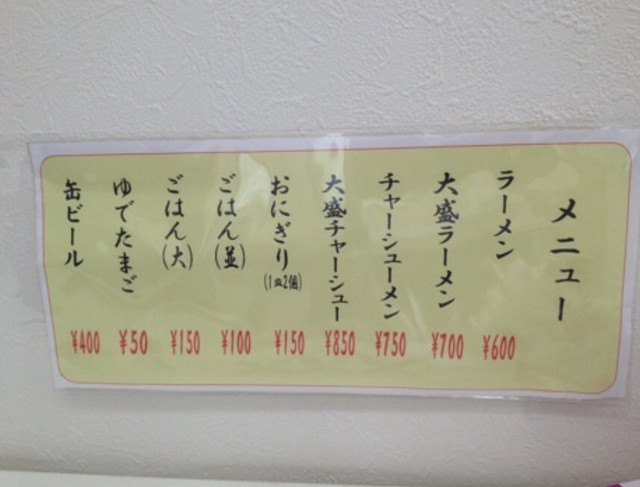 メニュー
ラーメン ¥600
大盛ラーメン ¥700
チャーシューメン ¥750
大盛チャーシュー ¥850
おにぎり(1皿2個) ¥150
ごはん(並) ¥100
ごはん(大) ¥150
ゆでたまご ¥50
缶ビール ¥400